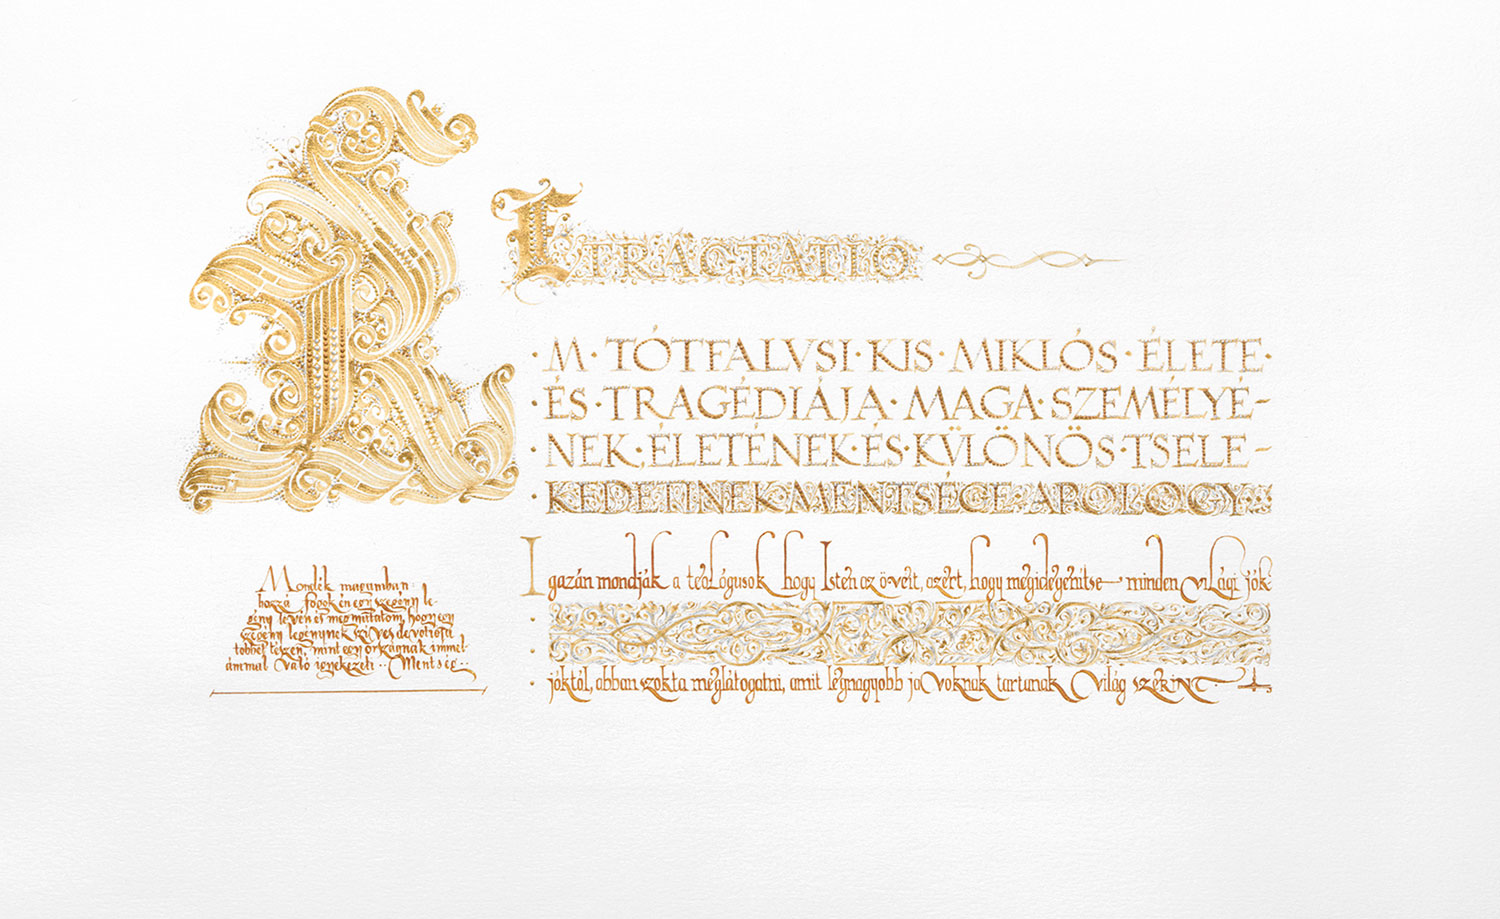 RETRACTATIO
· M · TÓTFALVSI · KIS · MIKLÓS · ÉLETE ·
· ÉS · TRAGÉDIÁJA · MAGA · SZEMÉLYÉ-
· NEK · ÉLETÉNEK · ÉS · KÜLÖNÖS · TSELE-
KEDETINEK MENTSÉGE · APOLOGY
Igazán mondják a teológusok hogy Isten az övéit, azért, hogy megidegenítse minden világi jók-
jóktól, abban szokta meglátogatni, amit legnagyobb javoknak tartanak világ szerint
Mondék magamban:
hozzá fogok én egy szegény le-
gény lévén és megmutatom, hogy egy
szegény legénynek szíves devotiója
többet tészen, mint egy országnak immel
ámmal való igyekezeti · · Mentség · ·